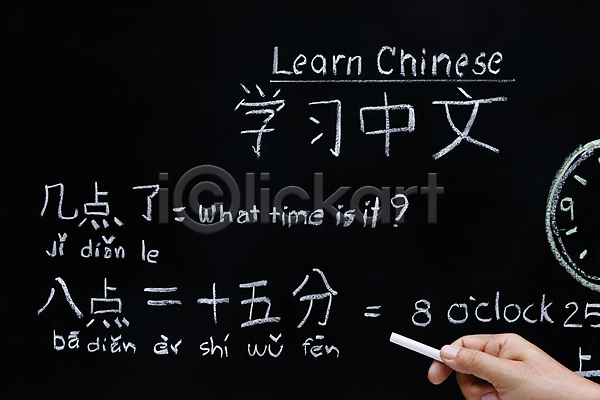 Learn Chinese
学习中文
几点了 = What time is it?
jǐ diǎn le
八点二十五分 = 8 o'clock 25
bā diǎn èr shí wǔ fēn
9
iclickart